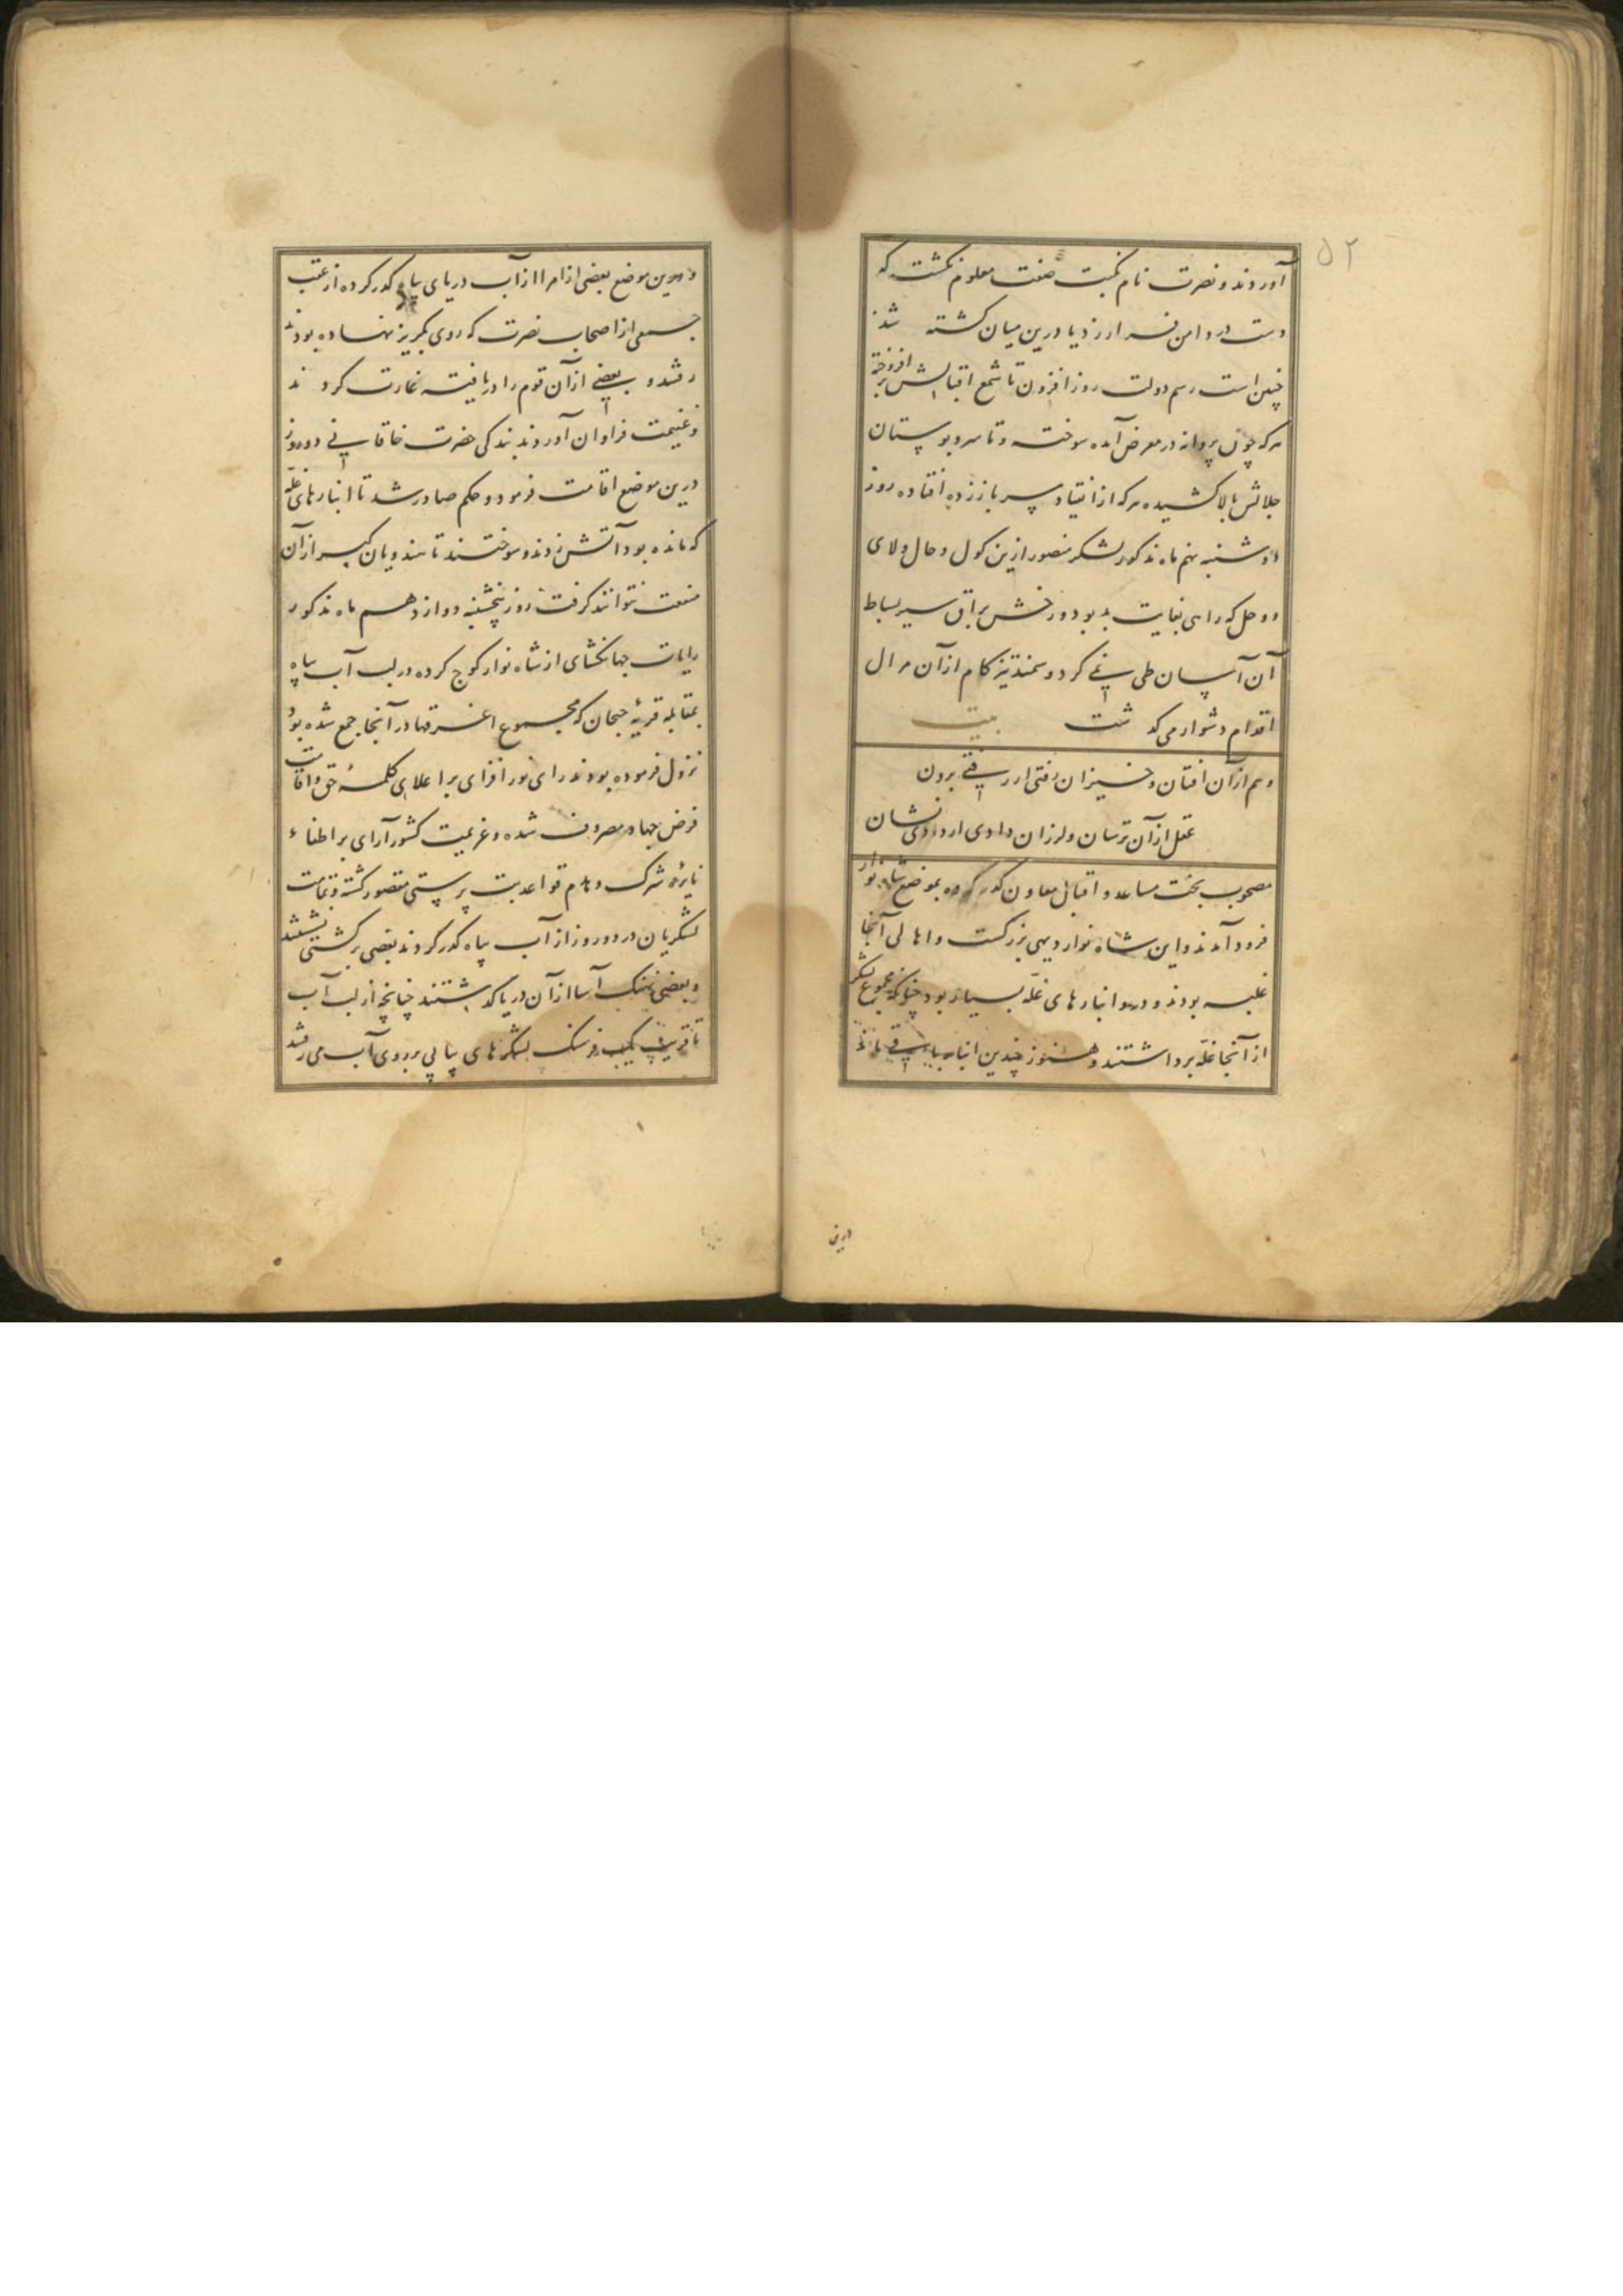 ۵۲
آوردند و نصرت نام نکبت صفت معلوم نکشت که
دست در دامن فرار زد یا درین میان کشته شد
چنین است رسم دولت روز افزون تا شمع اقبالش برافروخته
هرکه چون پروانه در معرض آمده سوخته و تا سرو بوستان
جلالش بالا کشیده هرکه از انقیاد سر باز زده افتاده روز
دوشنبه نهم ماه مذکور لشکر منصور ازین کول و حال ولای
و وحل که راهی بغایت بد بود و رخش براق سیر بساط
آن آسان طی نمی کرد و سمند تیز کام از آن مرال
اقدام دشوار می کدشت بیت
وهم از آن افتان و خیزان رفتی ار رفتی برون
عقل از آن ترسان و لرزان دادی ار دادی نشان
مصحوب بخت مساعد و اقبال معاون کدر کرده بموضع شاه نواز
فرود آمدند و این شاه نواز دیهی بزرکست و اهالی آنجا
غلبه بودند و درو انبارهای غله بسیار بود چنانکه مجموع لشکر
از آنجا غله برداشتند و هنوز چندین انبار باقی ماند
درین
و درین موضع بعضی از امرا از آب دریای بیاه کدر کرده از عقب
جمعی از اصحاب نصرت که روی بکریز نهاده بودند
رفتند و بعضی از آن قوم را دریافته غارت کردند
و غنیمت فراوان آوردند بندکی حضرت خاقانی دو روز
درین موضع اقامت فرمود و حکم صادر شد تا انبارهای غله
که مانده بود آتش زدند و سوختند تا هندویان کبر از آن
منفعت نتوانند کرفت روز پنجشنبه دوازدهم ماه مذکور
رایات جهانکشای از شاه نواز کوچ کرده در لب آب بیاه
بمقابله قریهٔ جنجان که مجموع اغرقها در آنجا جمع شده بود
نزول فرموده بودند رای نور افزای بر اعلای کلمهٔ حق و اقامت
فرض جهاد مصروف شده و عزیمت کشور آرای بر اطفاء
نایرهٔ شرک و هدم قواعد بت پرستی مقصور کشته و تمامت
لشکریان در دو روز از آب بیاه کدر کردند بعضی بر کشتی نشستند
و بعضی نهنک آسا از آن دریا کدشتند چنانچه از لب آب
تا قریب یک فرسنک لشکرهای پیاپی بر روی آب می رفتند